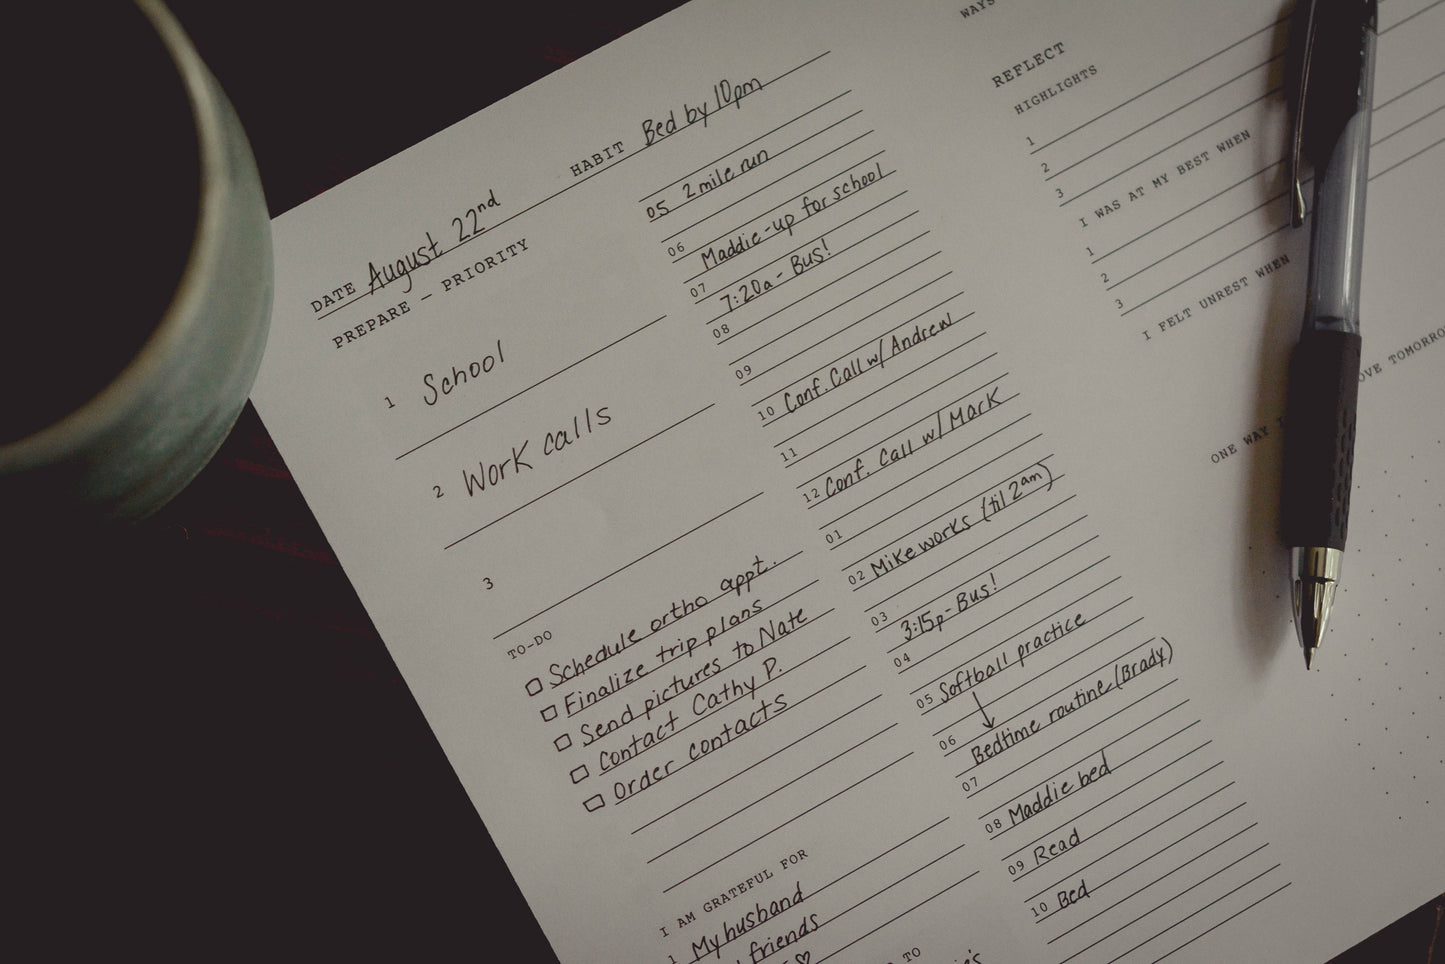 DATE August 22nd HABIT Bed by 10pm
PREPARE - PRIORITY
1 School
2 Work calls
3
TO-DO
☐ Schedule ortho appt.
☐ Finalize trip plans
☐ Send pictures to Nate
☐ Contact Cathy P.
☐ Order contacts
I AM GRATEFUL FOR
1 My husband
friends
♡
TO
05 2 mile run
06
Maddie-up for school
07
7:20a - Bus!
08
09
10 Conf. Call w/ Andrew
11
12 Conf. Call w/ Mark
01
02 Mike works (til 2am)
03
3:15p - Bus!
04
05 Softball practice
↓
06
Bedtime routine (Brady)
07
08 Maddie bed
09 Read
10 Bed
WAYS
REFLECT
HIGHLIGHTS
1
2
3
I WAS AT MY BEST WHEN
1
2
3
I FELT UNREST WHEN
ONE WAY I
OVE TOMORRO